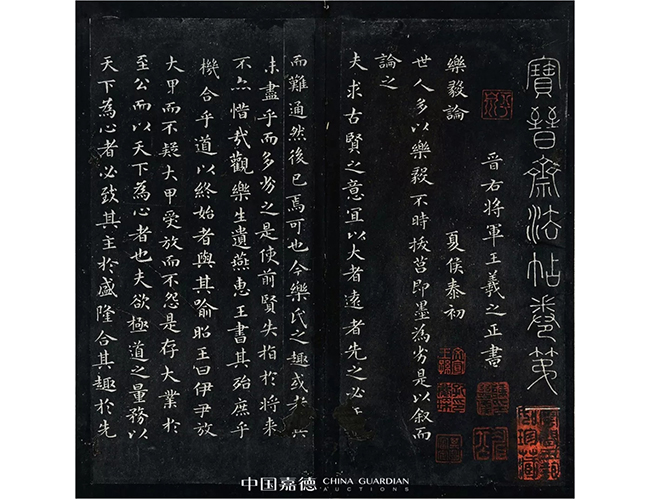 寶晉齋法帖卷第一
晉右將軍王羲之正書
樂毅論
夏侯泰初
世人多以樂毅不時拔莒即墨為劣是以叙而
論之
夫求古賢之意宜以大者遠者先之必
而難通然後已焉可也今樂氏之趣或者其
未盡乎而多劣之是使前賢失指於將來
不亦惜哉觀樂生遺燕惠王書其殆庶乎
機合乎道以終始者與其喻昭王曰伊尹放
大甲而不疑大甲受放而不怨是存大業於
至公而以天下為心者也夫欲極道之量務以
天下為心者必致其主於盛隆合其趣於先
中国嘉德 CHINA GUARDIAN
AUCTIONS